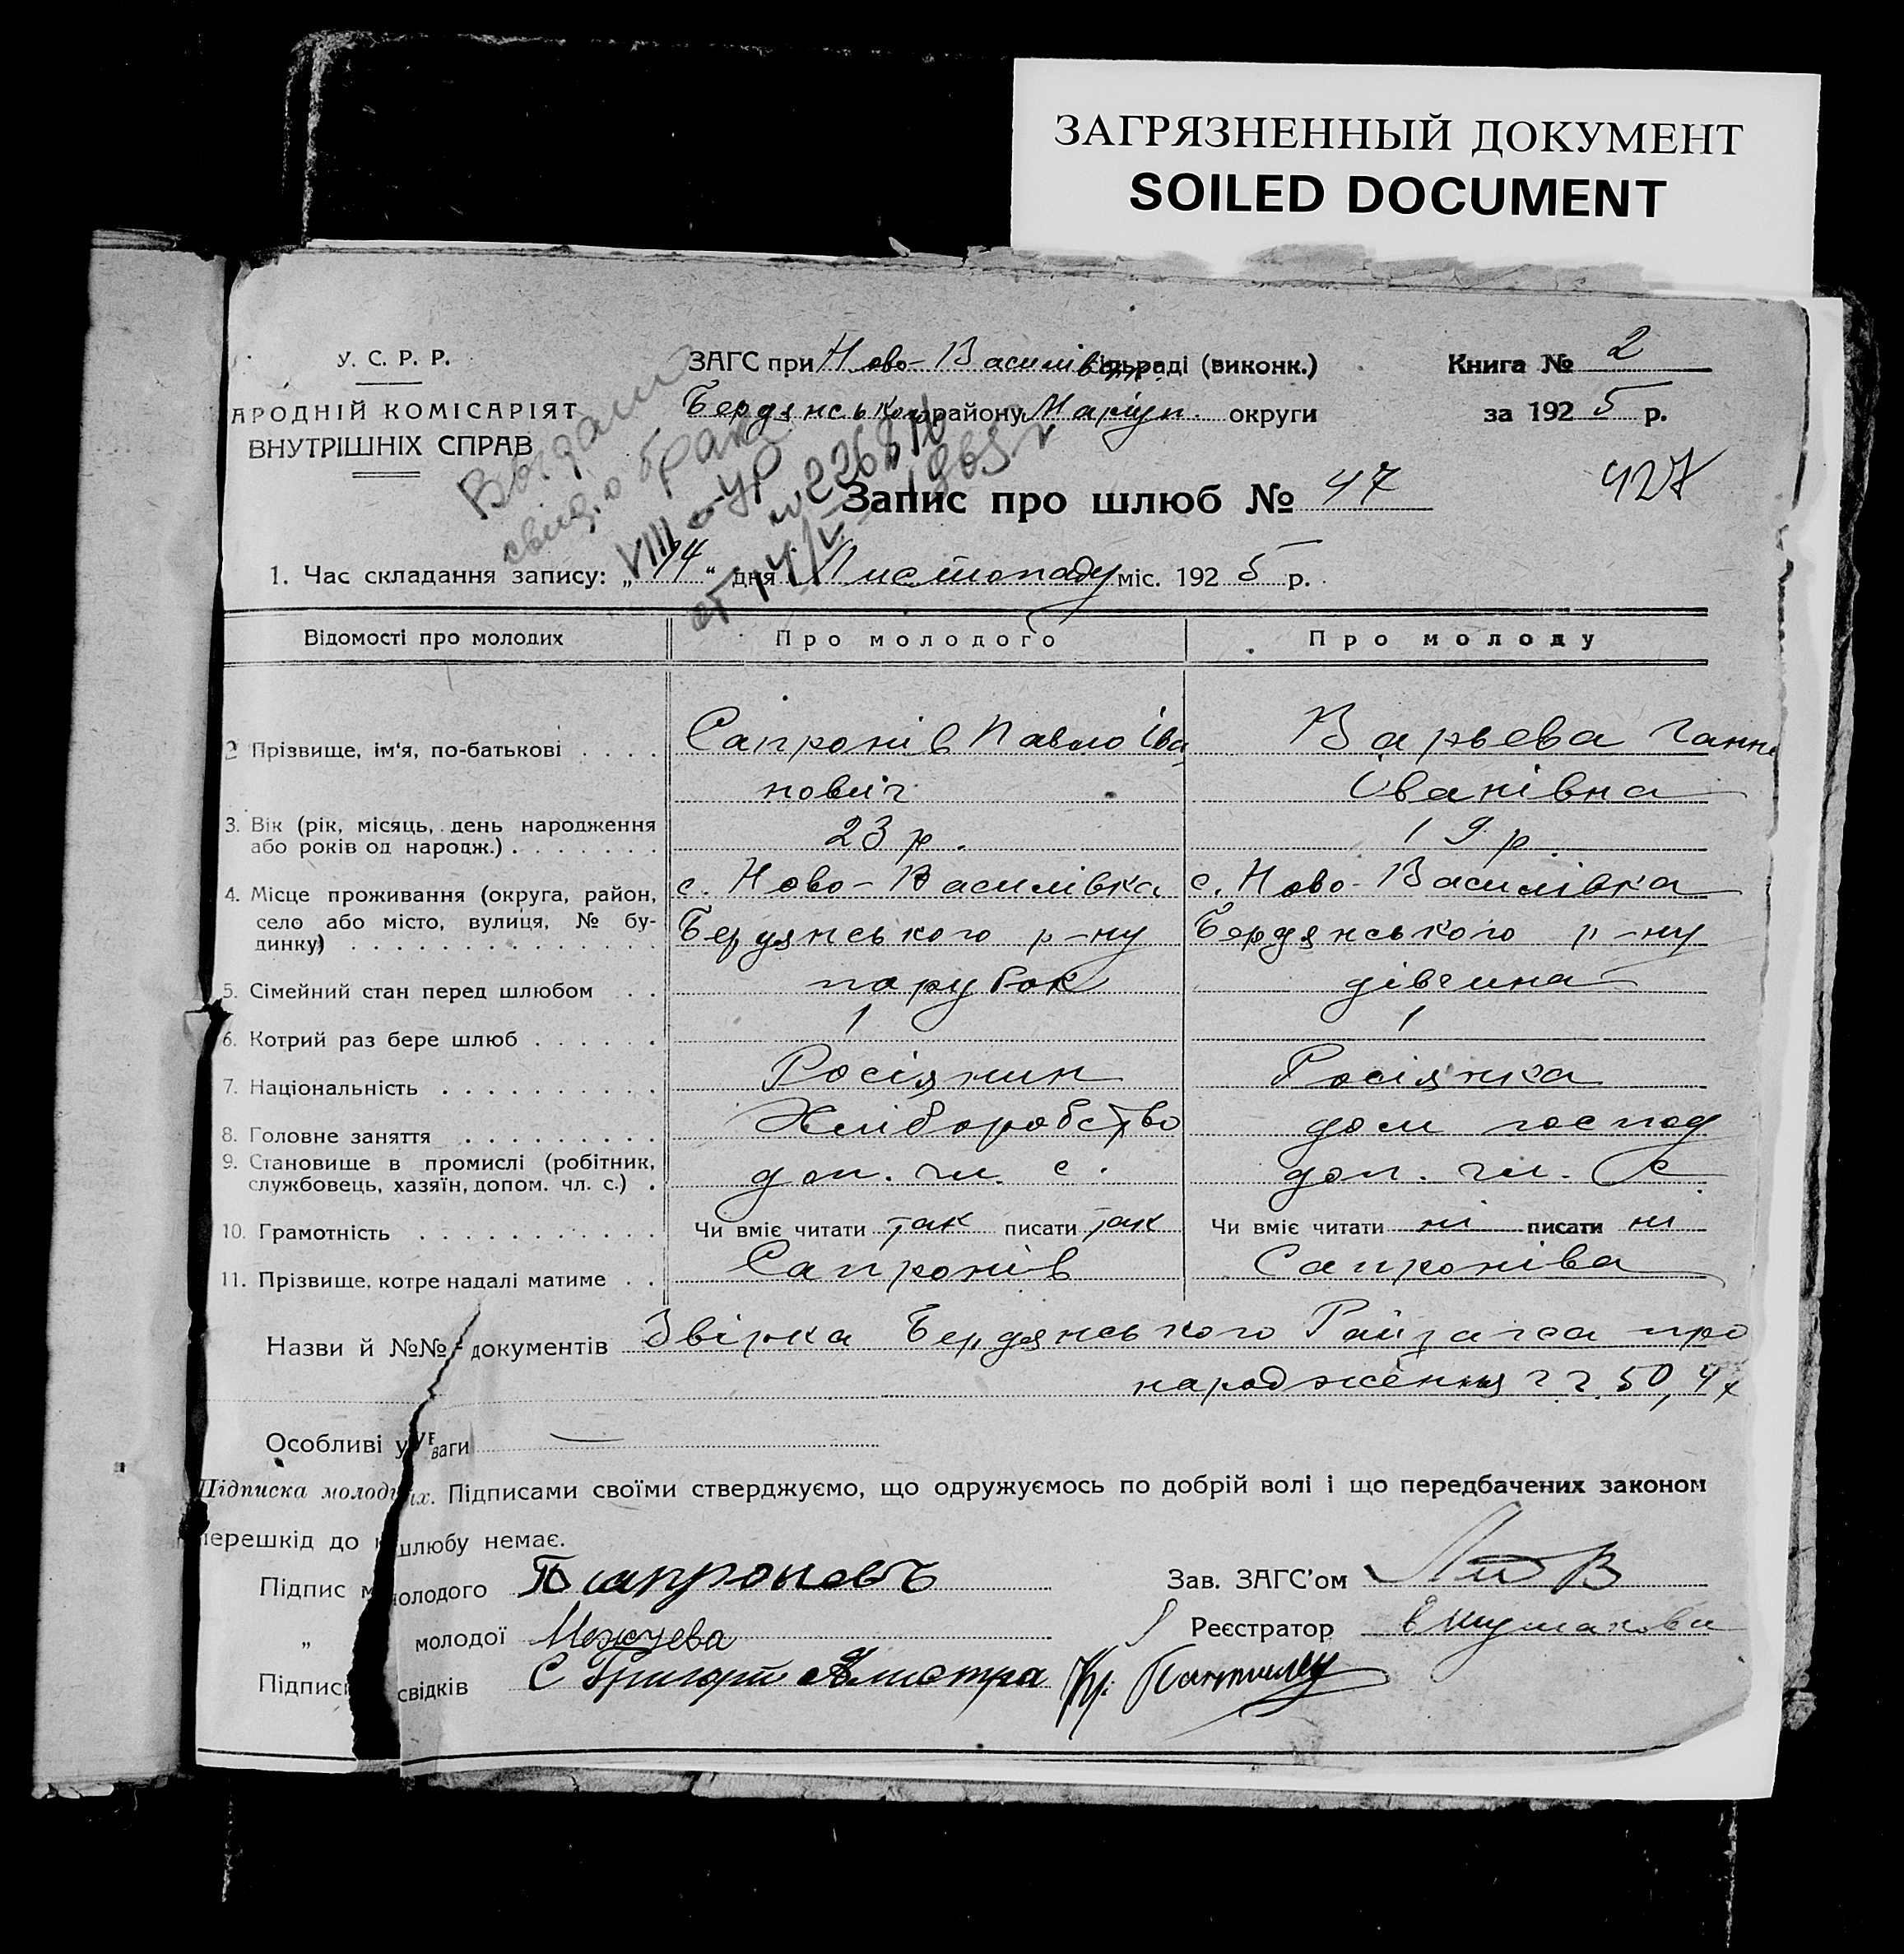 ЗАГРЯЗНЕННЫЙ ДОКУМЕНТ
SOILED DOCUMENT
У. С. Р. Р.
АРОДНІЙ КОМІСАРІЯТ
ВНУТРІШНІХ СПРАВ
ЗАГС при Ново-Василівськ. сільраді (виконк.)
Бердянського району Маріуп. округи
Книга № 2
за 1925 р.
Выдано
свид. о браке
VIII-УР
№ 226810
от 14/V-1965 г
Запис про шлюб № 47
427
1. Час складання запису: „14“ дня Листопаду міс. 1925 р.
Відомості про молодих Про молодого Про молоду
2 Прізвище, ім'я, по-батькові . . . . Сапронів Павло Іва Варьева Ганна
нович Іванівна
3. Вік (рік, місяць, день народження
або років од народж.) . . . . . . . 23 р. 19 р
4. Місце проживання (округа, район, с. Ново-Василівка с. Ново-Василівка
село або місто, вулиця, № бу-
динку) . . . . . . . . . . . . . . Бердянського р-ну Бердянського р-ну
5. Сімейний стан перед шлюбом . . парубок дівчина
6. Котрий раз бере шлюб . . . . . . 1 1
7. Національність . . . . . . . . . . Росіянин Росіянка
8. Головне заняття . . . . . . . . . Хліборобство дом господ
9. Становище в промислі (робітник,
службовець, хазяїн, допом. чл. с.) . доп. чл. с. доп. чл. с.
10. Грамотність . . . . . . . . . . . Чи вміє читати так писати так Чи вміє читати ні писати ні
11. Прізвище, котре надалі матиме . . Сапронів Сапроніва
Назви й №№ документів Звірка Бердянського Райзагса про
народження г г. 50, 47
Особливі уваги —
Підписка молодих. Підписами своїми стверджуємо, що одружуємось по добрій волі і що передбачених законом
перешкід до шлюбу немає.
Підпис молодого Псапроновъ Зав. ЗАГС'ом
„ молодої Реєстратор
Підписи свідків Григорій